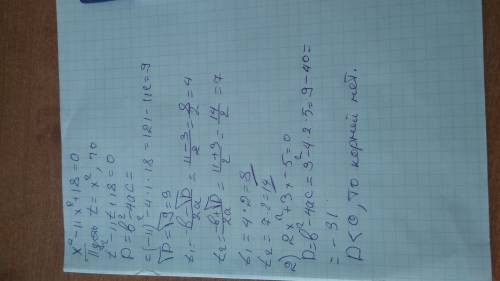 x⁴-11x²+18=0
Пусть t=x², ≥0
t²-11t+18=0
D=b²-4ac=
=(-11)²-4·1·18=121-112=9
√D=√9=3
t₁=-b-√D/2a=11-3/2=8/2=4
t₂=-b+√D/2a=11+3/2=14/2=7
t₁=4*2=8
t₂=7·2=14
2) 2x⁴+3x-5=0
D=b²-4ac=3²-4·2·5=9-40=
=-31
D<0, то корней нет.